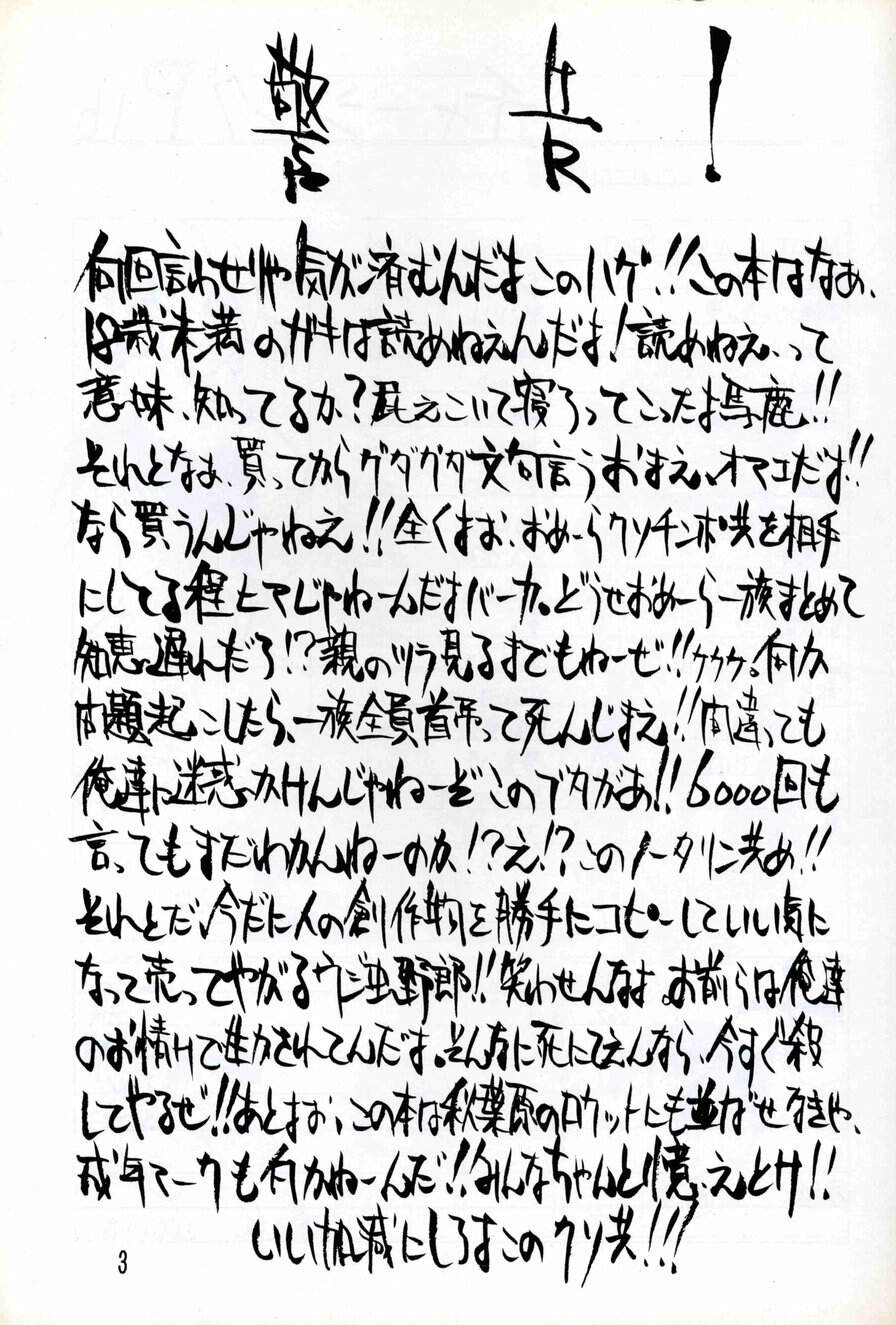 警告!
何回言わせりゃ気が済むんだよこのハゲ!!この本はなぁ、
18歳未満のガキは読めねえんだよ!読めねえって
意味、知ってるか?屁えこいて寝ろってこったよ馬鹿!!
それとなぁ、買ってからグダグダ文句言うおまえ、オマエだよ!!
なら買うんじゃねえ!!全くよお、おめーらクソチンポ共を相手
にしてる程ヒマじゃねーんだよバーカ。どうせおめーら一族まとめて
知恵遅れだろ!?親のツラ見るまでもねーぜ!!ククク。何か
問題起こしたら、一族全員首吊って死んじまえ!!間違っても
俺達に迷惑かけんじゃねーぞこのブタがあ!!6000回も
言ってもまだわかんねーのか!?え!?このノータリン共め!!
それとだ、今だに人の創作物を勝手にコピーしていい気に
なって売ってやがるウジ虫野郎!!笑わせんなよ。お前らは俺達
のお情けで生かされてんだよ。そんなに死にてえんなら、今すぐ殺
してやるぜ!!あとよお、この本は秋葉原のロケットにも並ばせなきゃ、
成年マークも付かねーんだ!!みんなちゃんと憶えとけ!!
いい加減にしろよこのクソ共!!!
3